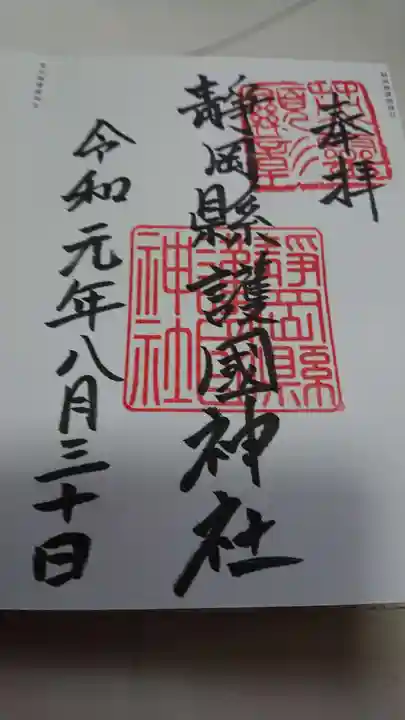 奉拝
靜岡縣護國神社
靜岡縣護國神社
令和元年八月三十日